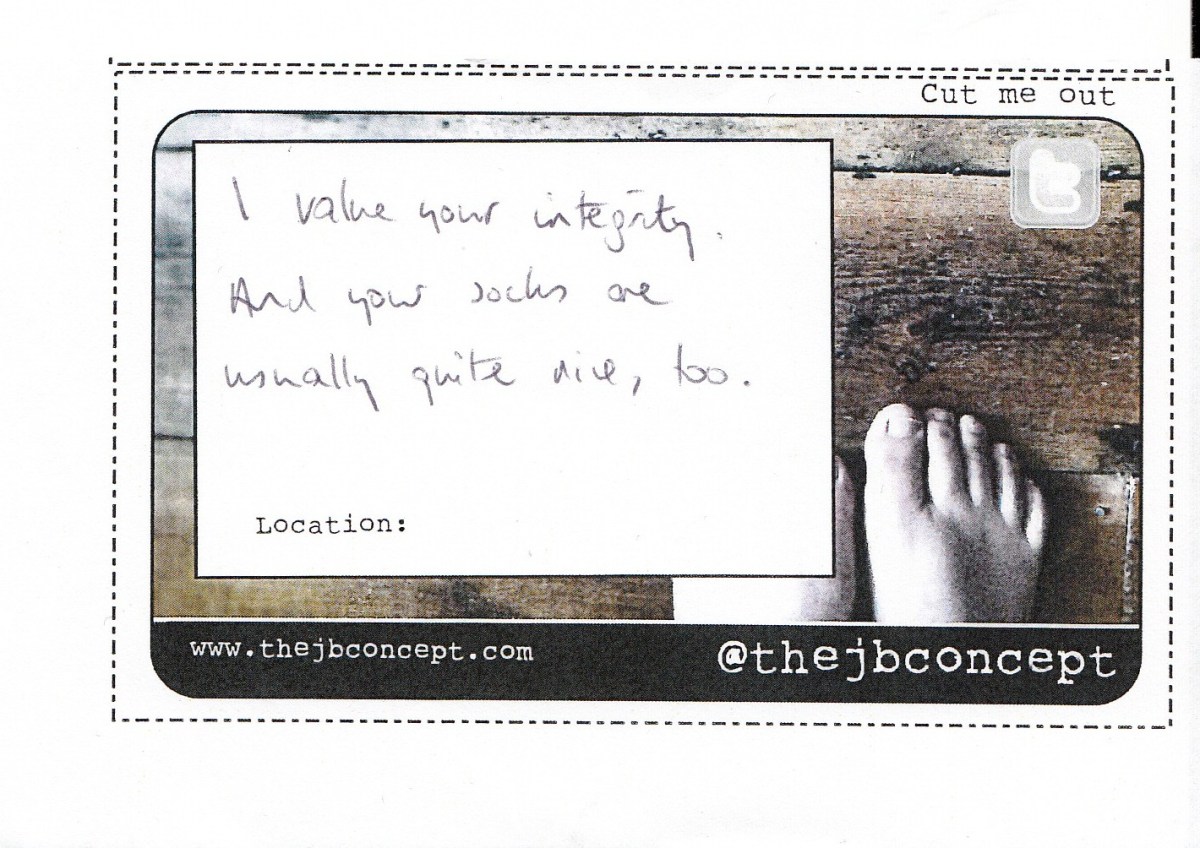 Cut me out
I value your integrity.
And your socks are
usually quite nice, too.
Location:
www.thejbconcept.com
@thejbconcept